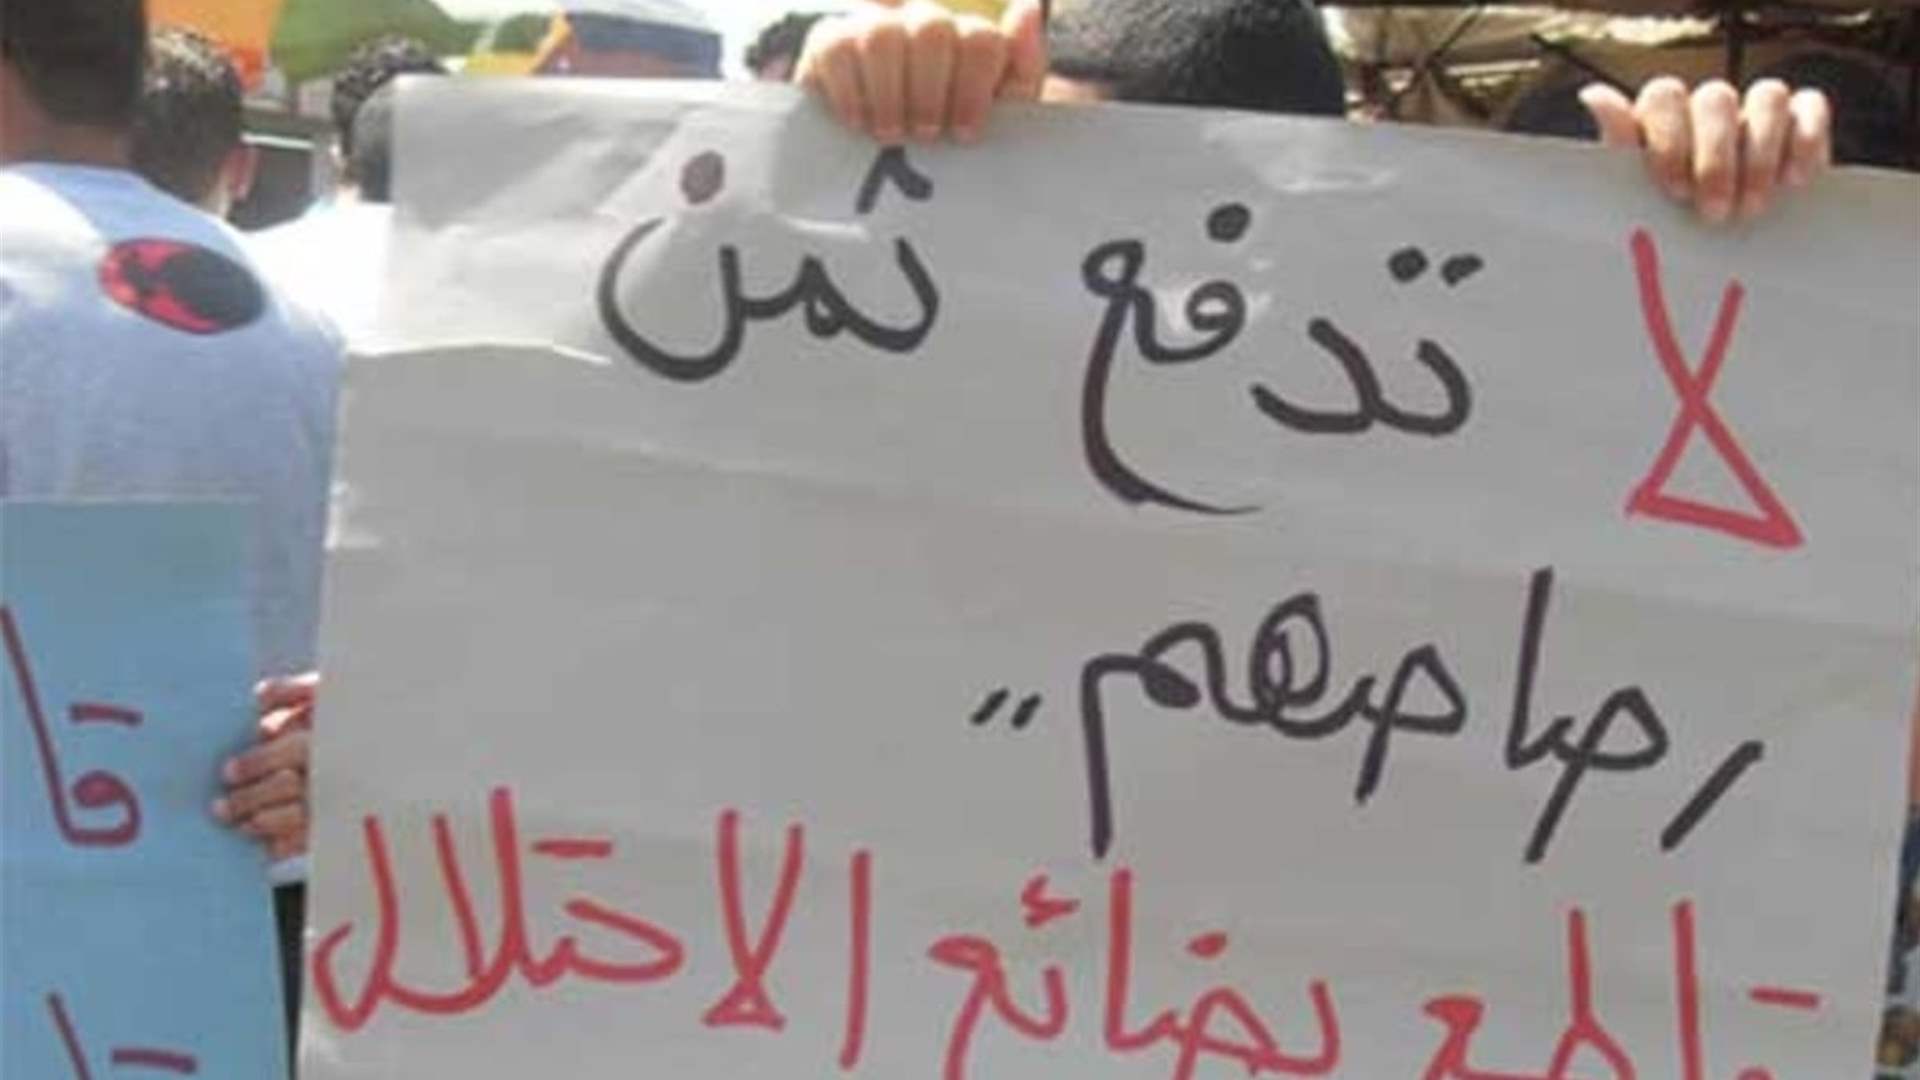 لا تدفع ثمن
رصاصهم ,,
قاطع بضائع الاحتلال
قا
قا